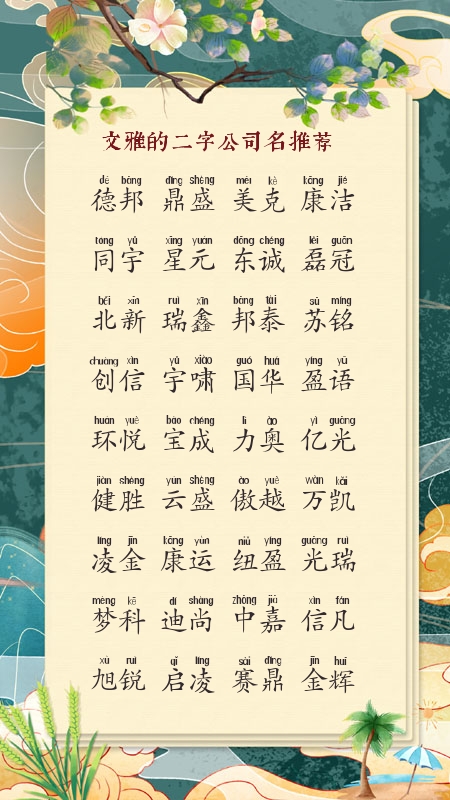 文雅的二字公司名推荐
dé bāng dǐng shèng měi kè kāng jié
德邦 鼎盛 美克 康洁
tóng yǔ xīng yuán dōng chéng lěi guān
同宇 星元 东诚 磊冠
běi xīn ruì xīn bāng tài sū míng
北新 瑞鑫 邦泰 苏铭
chuàng xìn yǔ xiào guó huá yíng yǔ
创信 宇啸 国华 盈语
huán yuè bǎo chéng lì ào yì guāng
环悦 宝成 力奥 亿光
jiàn shèng yún shèng ào yuè wàn kǎi
健胜 云盛 傲越 万凯
líng jīn kāng yùn niǔ yíng guāng ruì
凌金 康运 纽盈 光瑞
mèng kē dí shàng zhōng jiā xìn fán
梦科 迪尚 中嘉 信凡
xù ruì qǐ líng sài dǐng jīn huī
旭锐 启凌 赛鼎 金辉